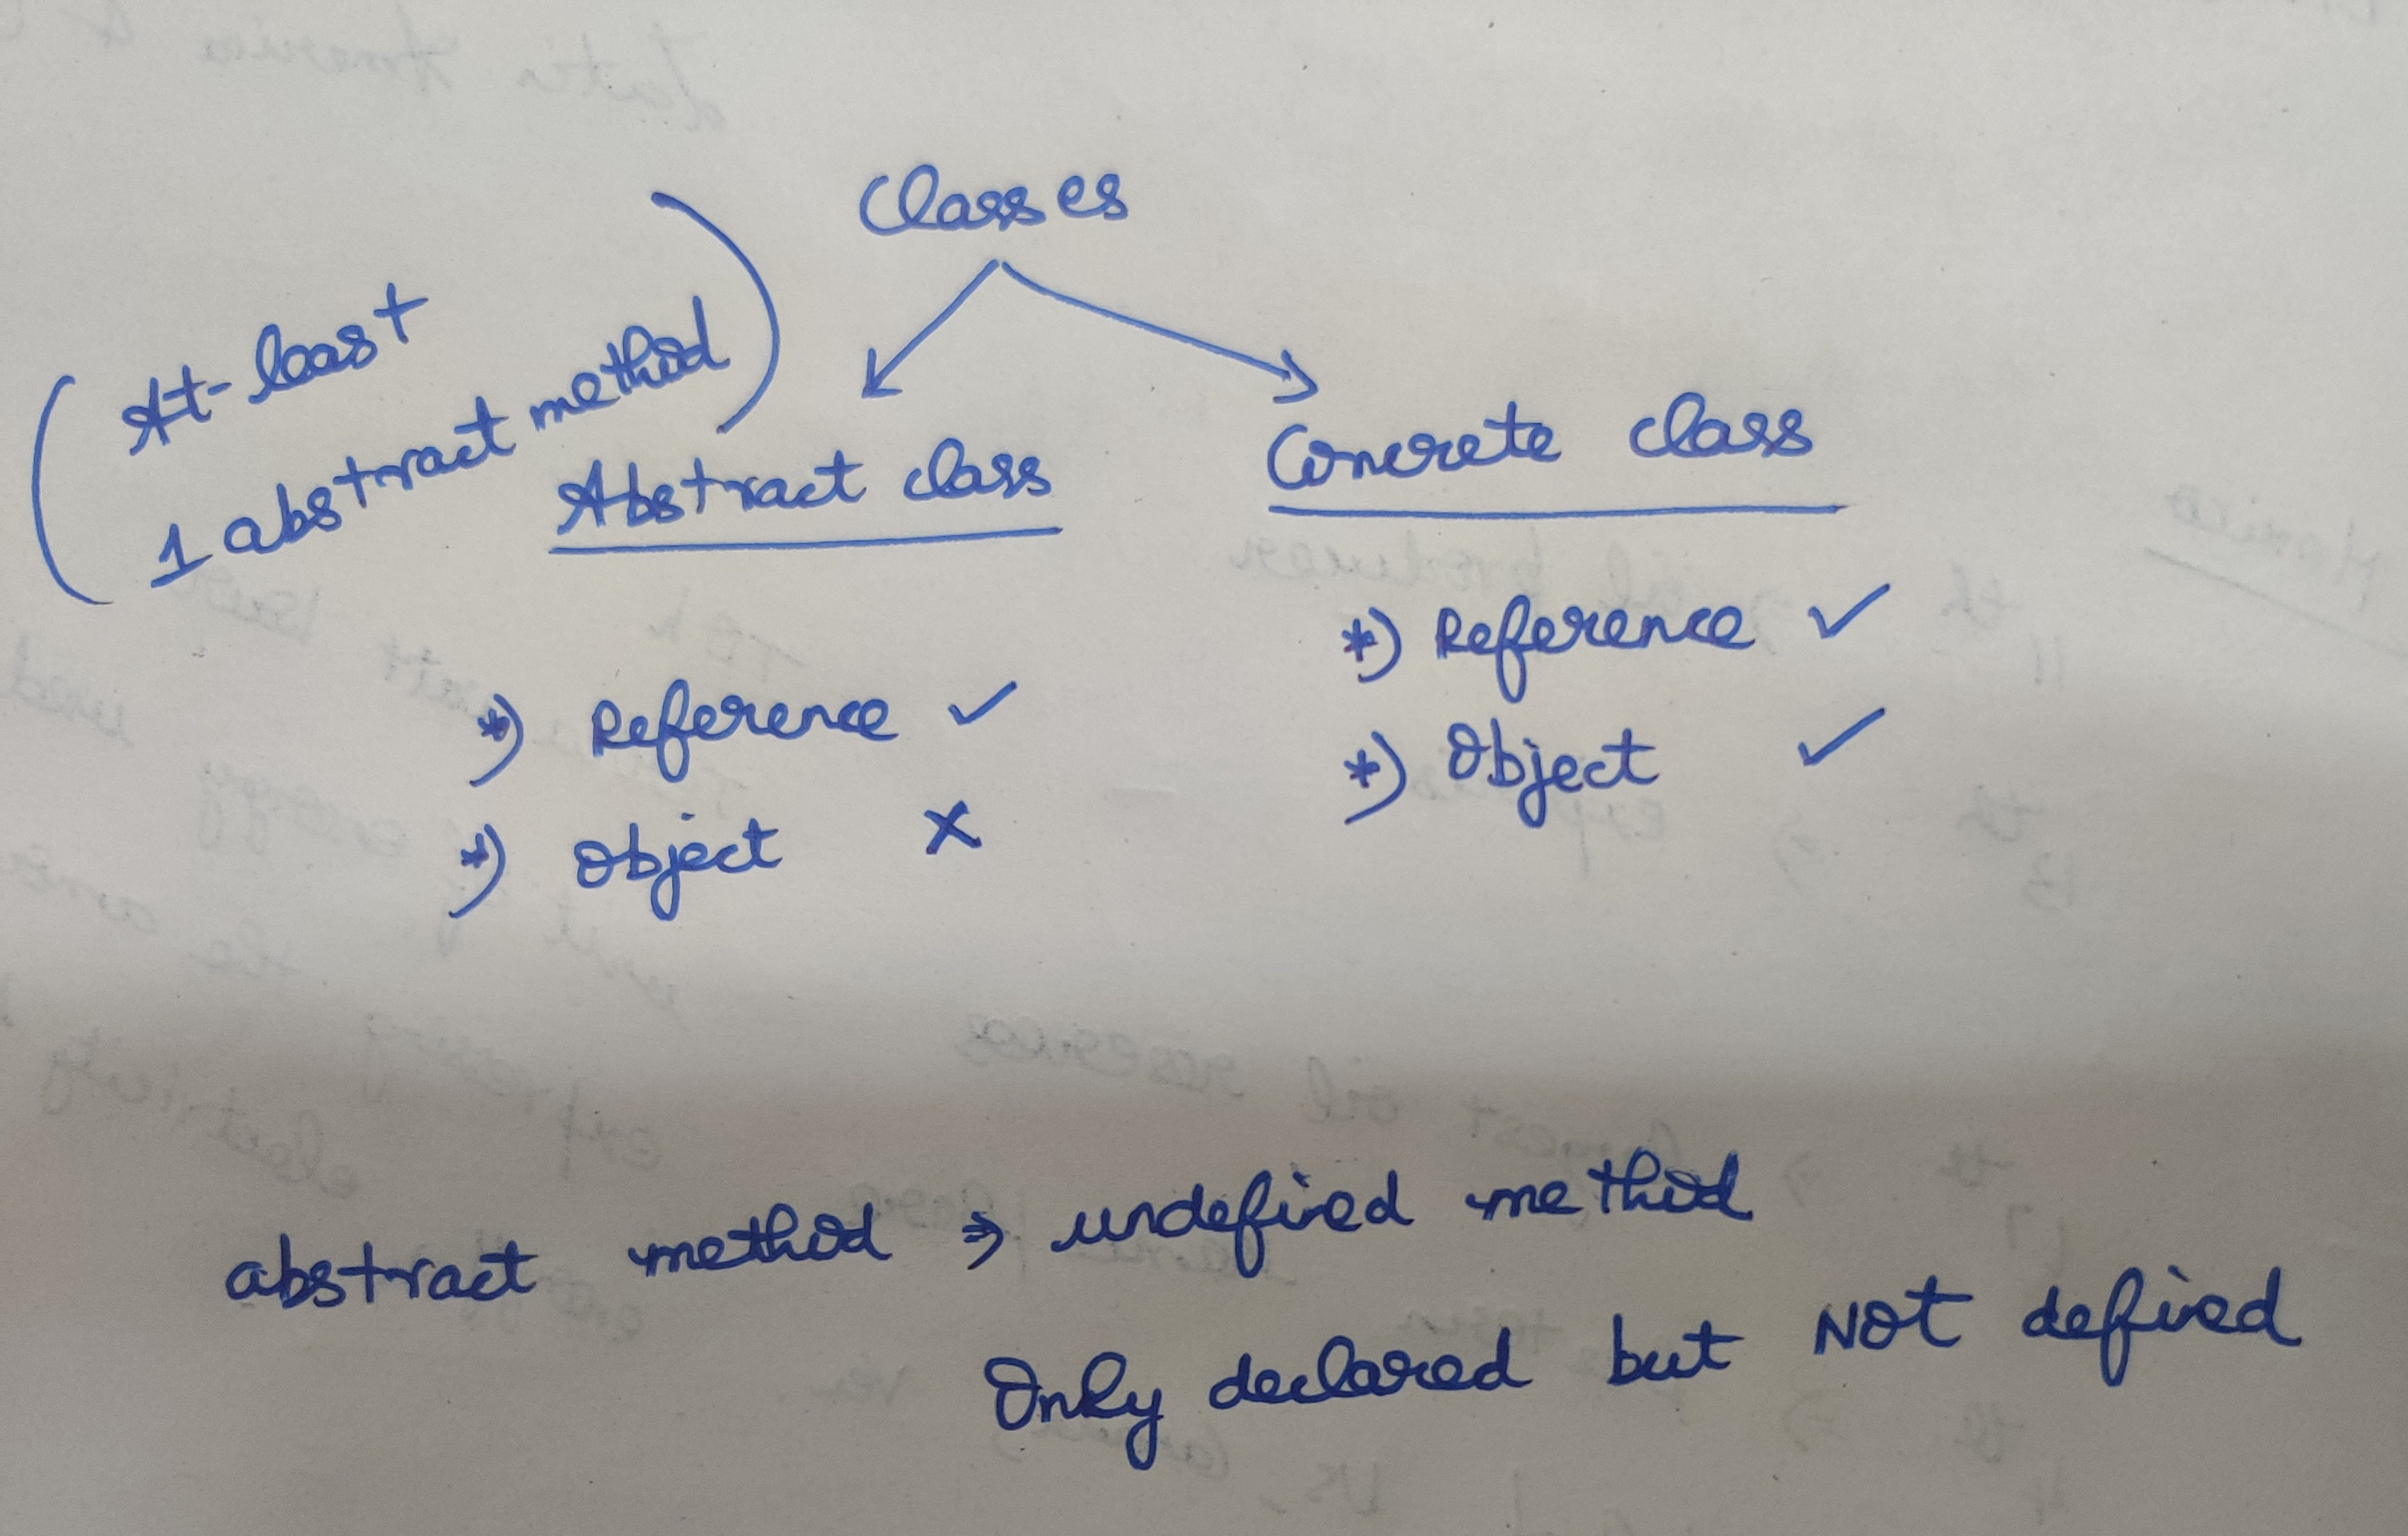 Classes
(At-least
1 abstract method)
Abstract class
*) Reference ✓
*) Object ✗
Concrete class
*) Reference ✓
*) Object ✓
abstract method ⇒ undefined method
Only declared but NOT defined